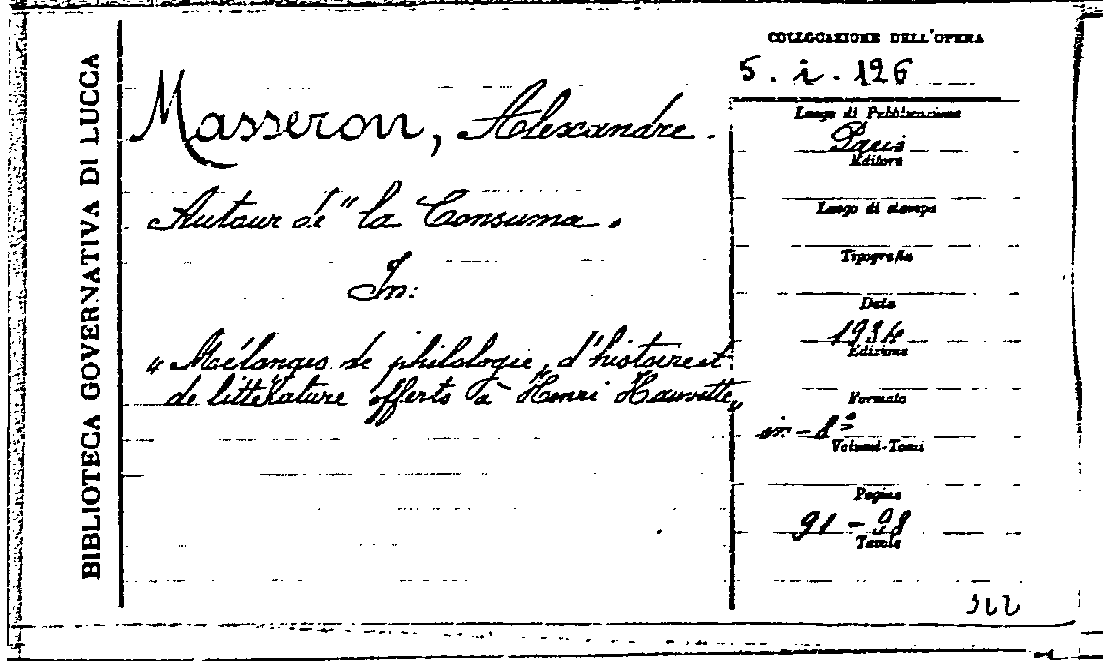 BIBLIOTECA GOVERNATIVA DI LUCCA
COLLOCAZIONE DELL'OPERA
5. i. 126
Masseron, Alexandre.
Autour de "la Consuma.
In:
„ Mélanges de philologie„ d'histoire et
de littérature offerts à Henri Hauvette„
Luogo di Pubblicazione
Paris
Editore
Luogo di stampa
Tipografia
Data
1934
Edizione
Formato
in-8°
Volumi-Tomi
Pagine
91-98
Tavole